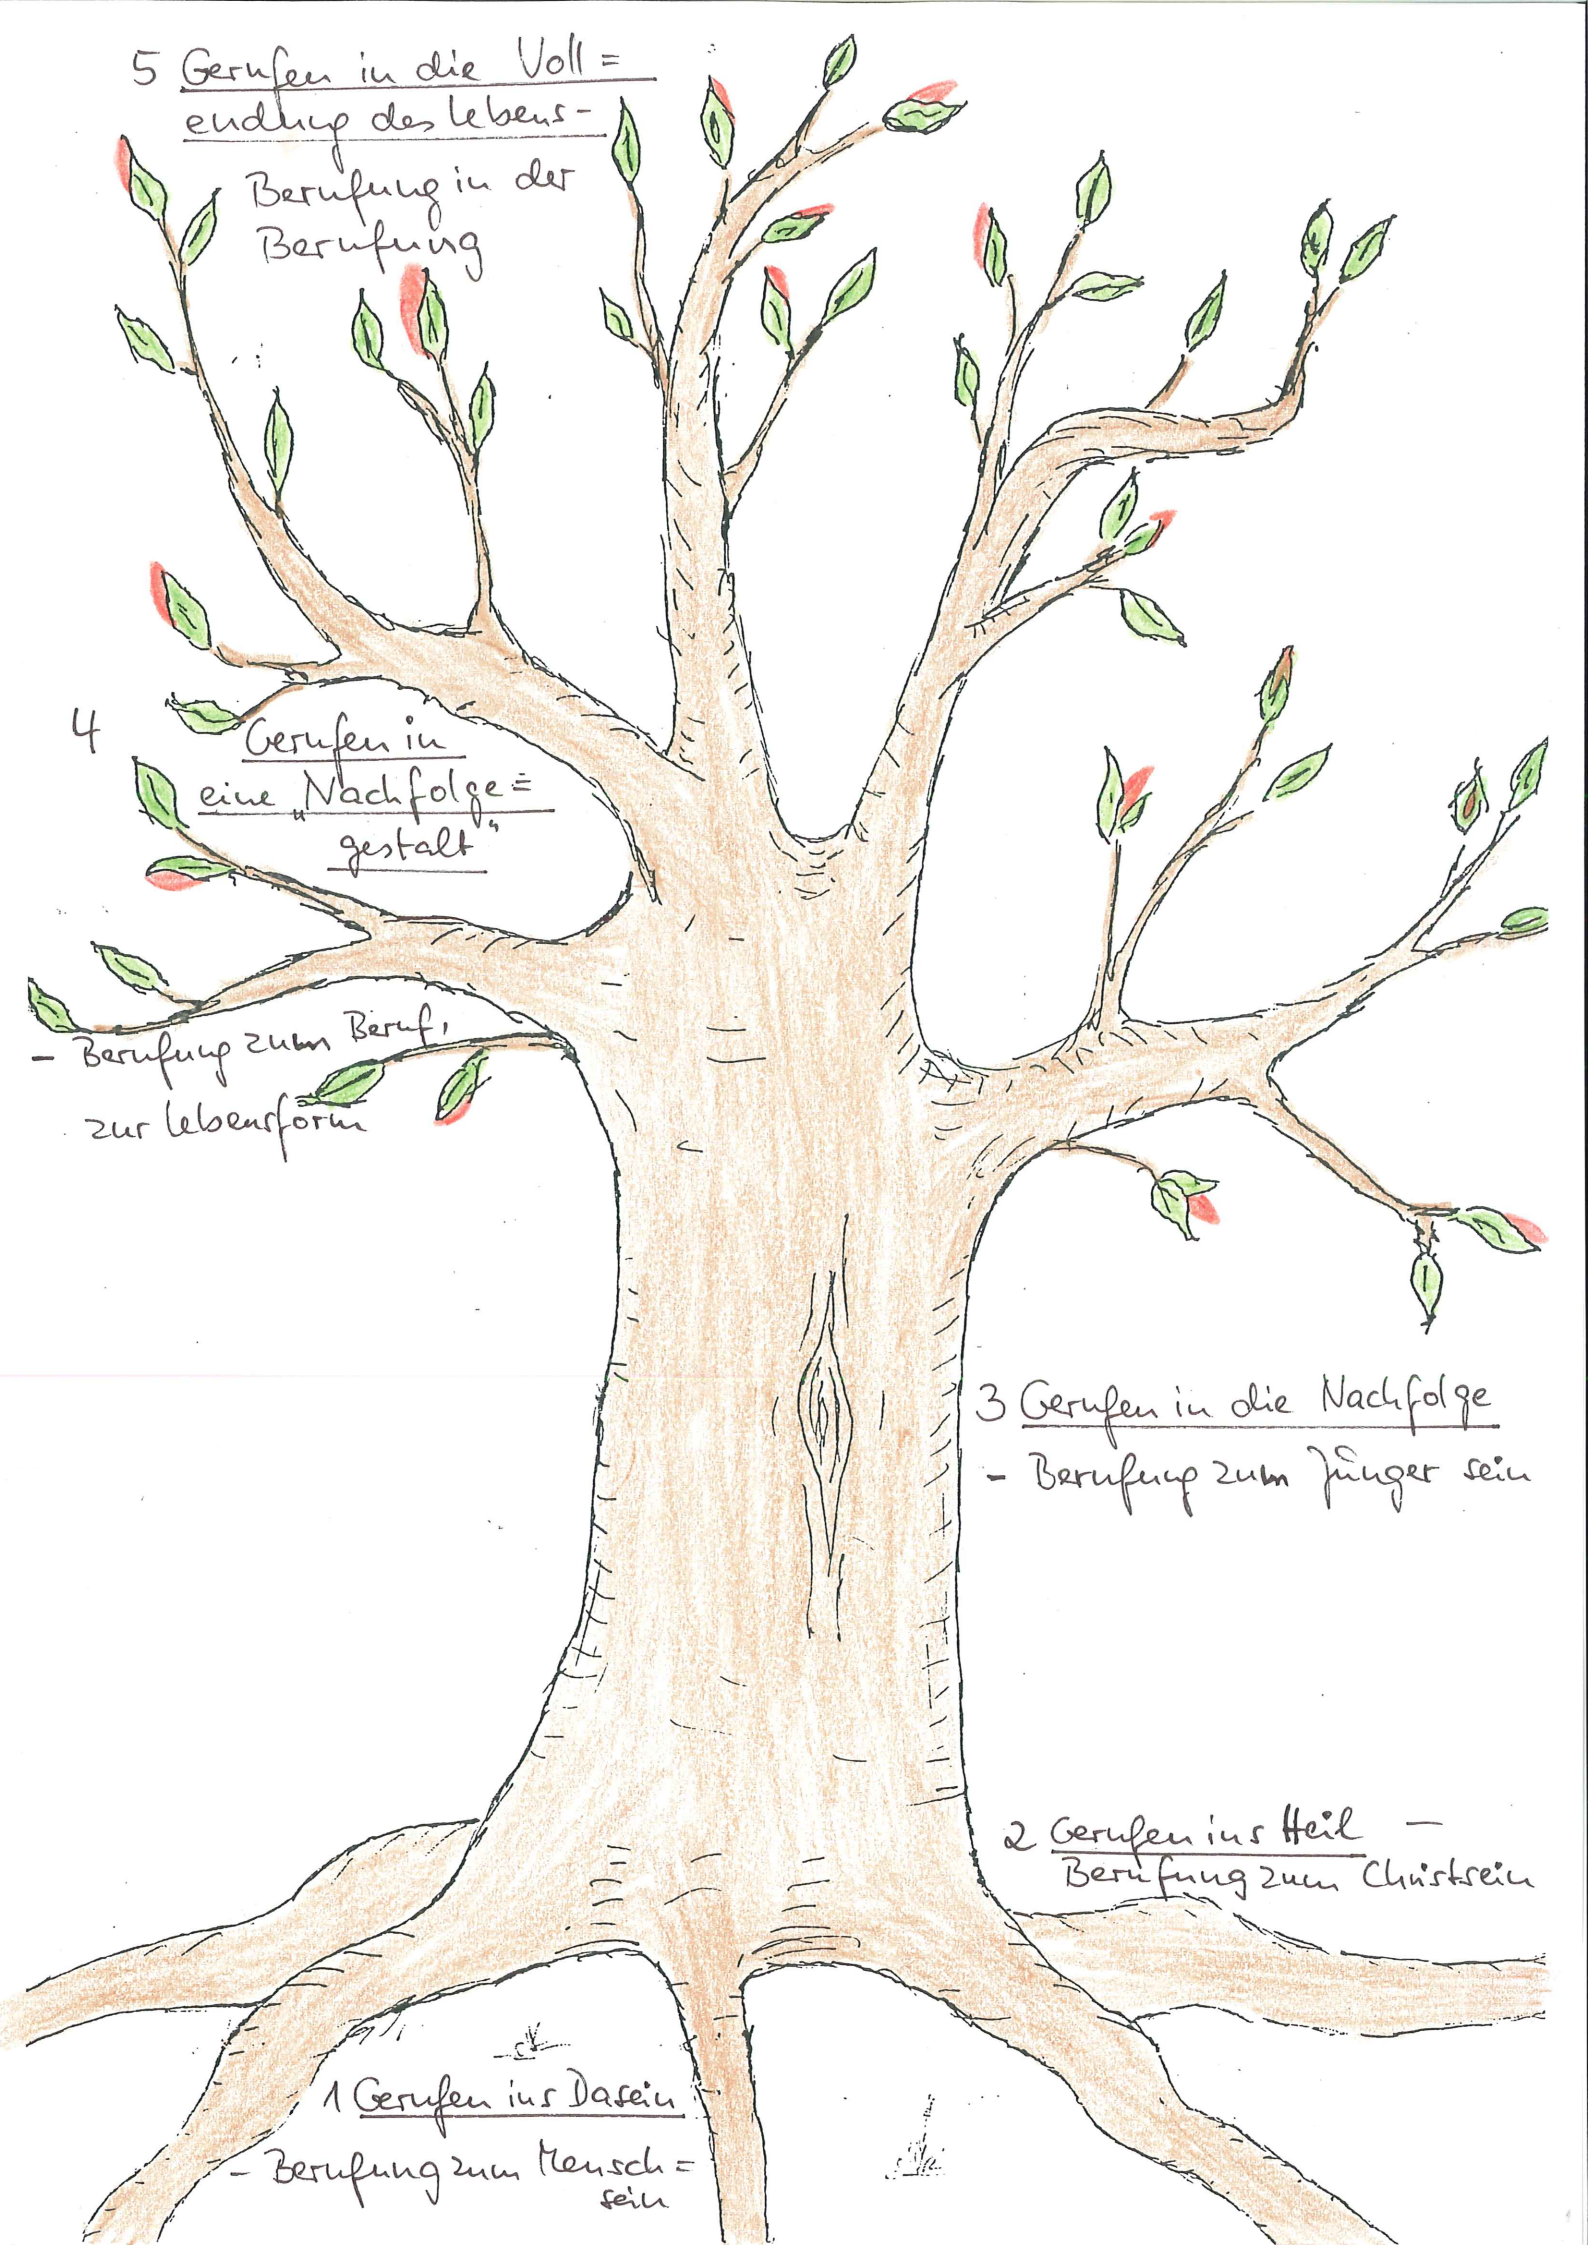 5 Gerufen in die Voll=
endung des Lebens-
Berufung in der
Berufung
4 Gerufen in
eine „Nachfolge=
gestalt"
- Berufung zum Beruf,
zur Lebensform
3 Gerufen in die Nachfolge
- Berufung zum Jünger sein
2 Gerufen ins Heil -
Berufung zum Christsein
1 Gerufen ins Dasein
- Berufung zum Mensch=
sein